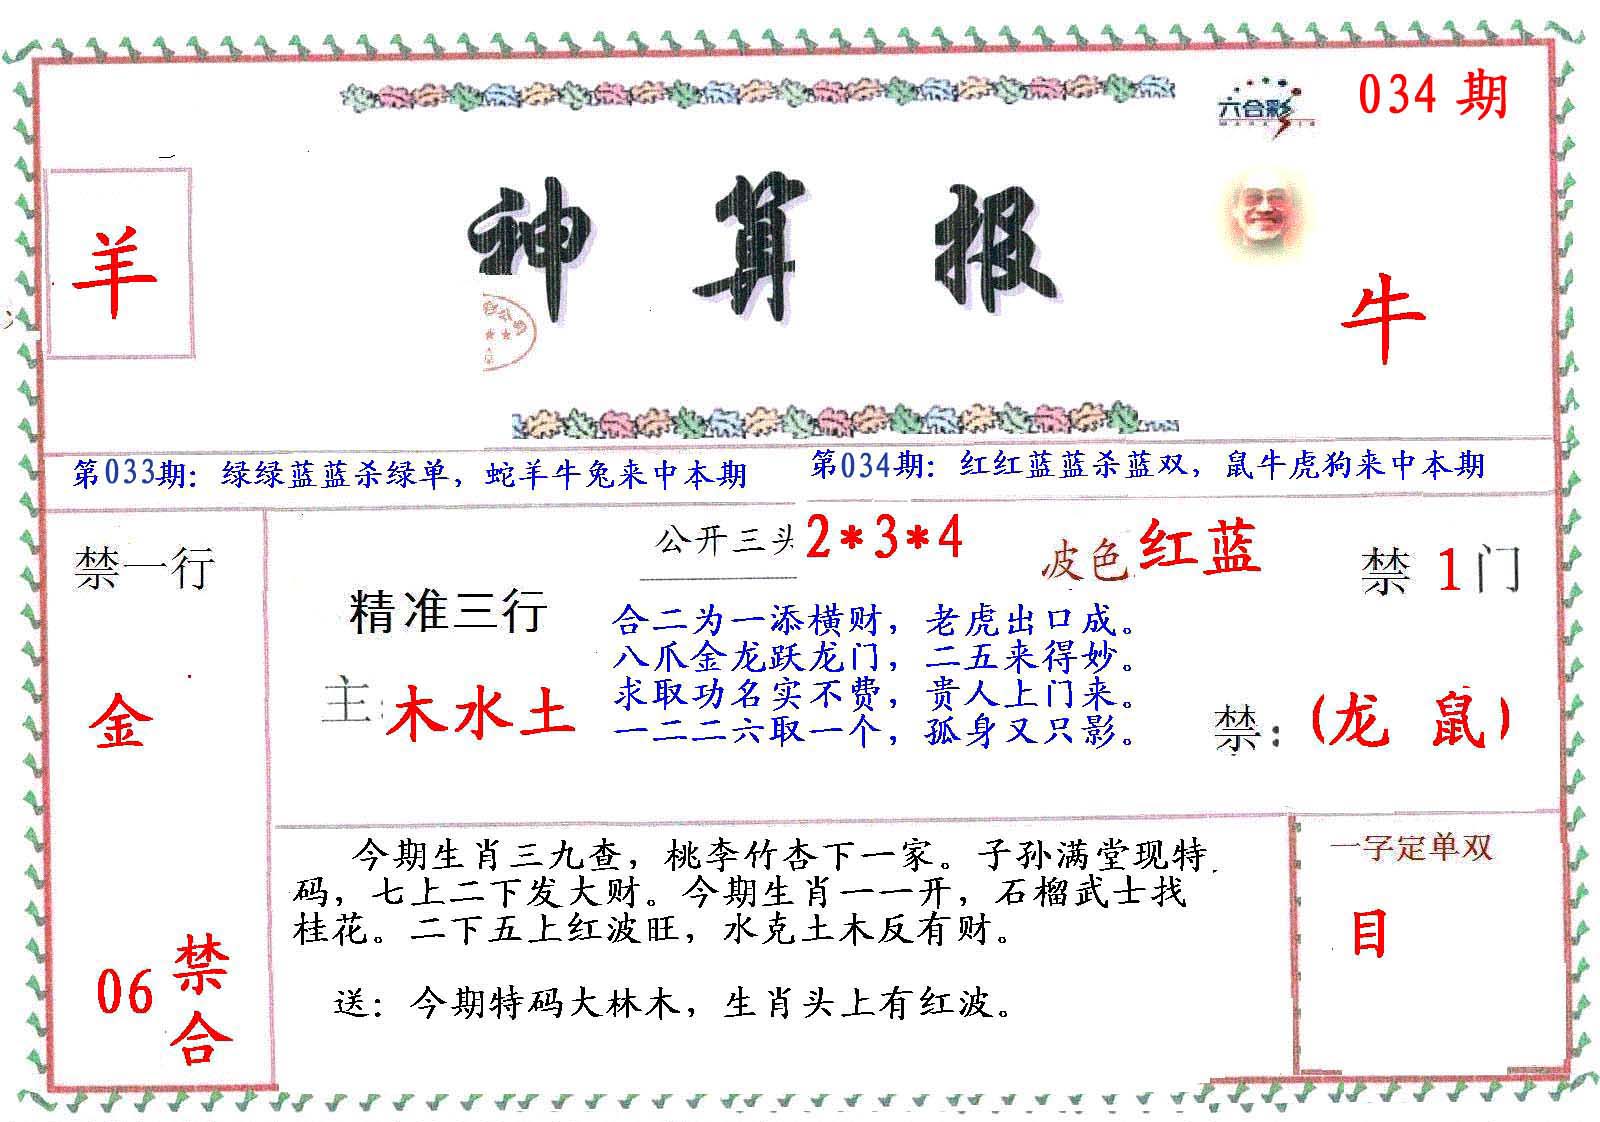 六合彩
034 期
羊
神算报
牛
第033期：绿绿蓝蓝杀绿单，蛇羊牛兔来中本期
第034期：红红蓝蓝杀蓝双，鼠牛虎狗来中本期
禁一行
金
06 禁合
公开三头 2*3*4
波色 红蓝
禁 1 门
精准三行
主：木水土
合二为一添横财，老虎出口成。
八爪金龙跃龙门，二五来得妙。
求取功名实不费，贵人上门来。
一二二六取一个，孤身又只影。
禁：（龙 鼠）
今期生肖三九查，桃李竹杏下一家。子孙满堂现特
码，七上二下发大财。今期生肖一一开，石榴武士找
桂花。二下五上红波旺，水克土木反有财。
送：今期特码大林木，生肖头上有红波。
一字定单双
目